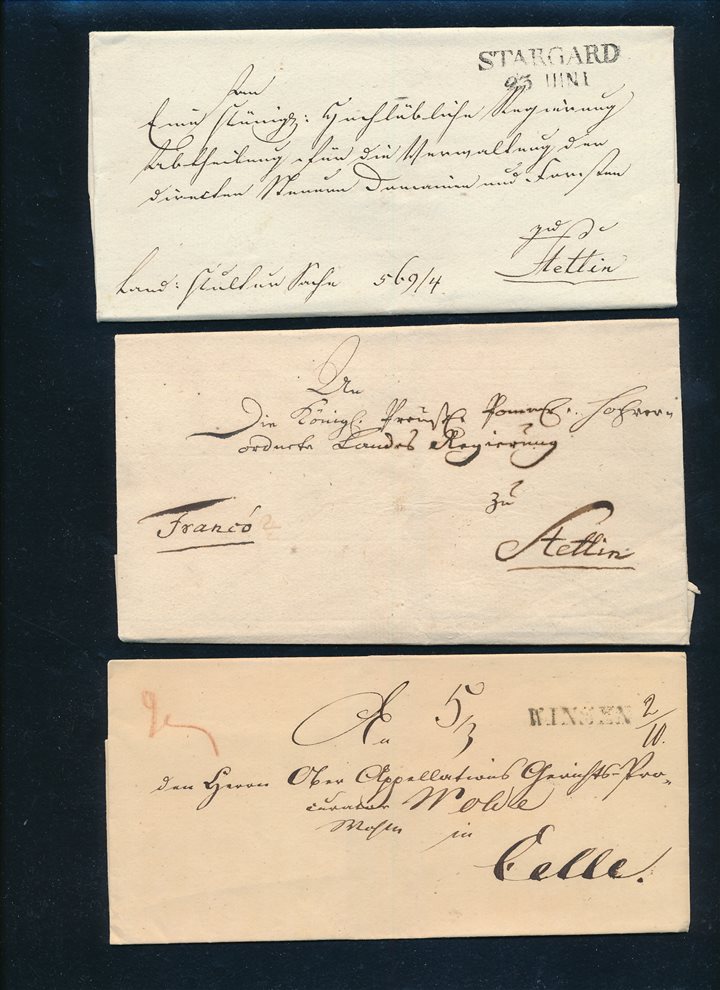 STARGARD
23 IUNI
An
Eine Königl: Hochlöbliche Regierung
Abtheilung für die Verwaltung der
directen Steuern Domainen und Forsten
zu
Stettin
Land: Kultur Sache 569/4
An
Die Königl. Preuß. Pomm.
ordnete Landes Regierung
zu
Francó
Stettin
An 5/3 WINSEN 2/10.
den Herrn Ober Appellations Gerichts-Pro-
curator Wolde
in
Celle.